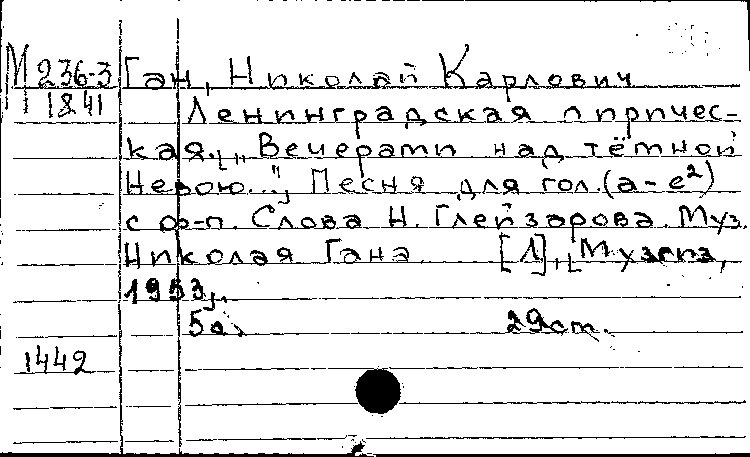 М 236-3 Ган, Николай Карлович
1841 Ленинградская лиричес-
кая. „Вечерами над тёмной
Невою..." Песня для гол. (а - е²)
с ф-п. Слова Н. Глейзарова. Муз.
Николая Гана. [Л], Музгиз,
1953,
5 с. 29 см.
1442